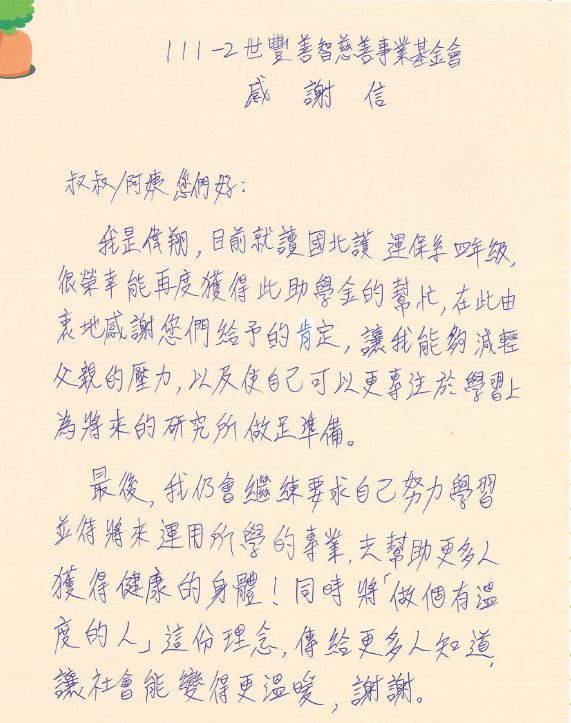 111-2世豐善智慈善事業基金會
感謝信
叔叔/阿姨您們好:
我是偉翔,目前就讀國北護運保系四年級,
很榮幸能再度獲得此助學金的幫忙,在此由
衷地感謝您們給予的肯定,讓我能夠減輕
父親的壓力,以及使自己可以更專注於學習上
為將來的研究所做足準備。
最後,我仍會繼練要求自己努力學習
並待將來運用所學的專業,去幫助更多人
獲得健康的身體!同時將「做個有溫
度的人」這份理念,傳給更多人知道,
讓社會能變得更溫暖,謝謝。